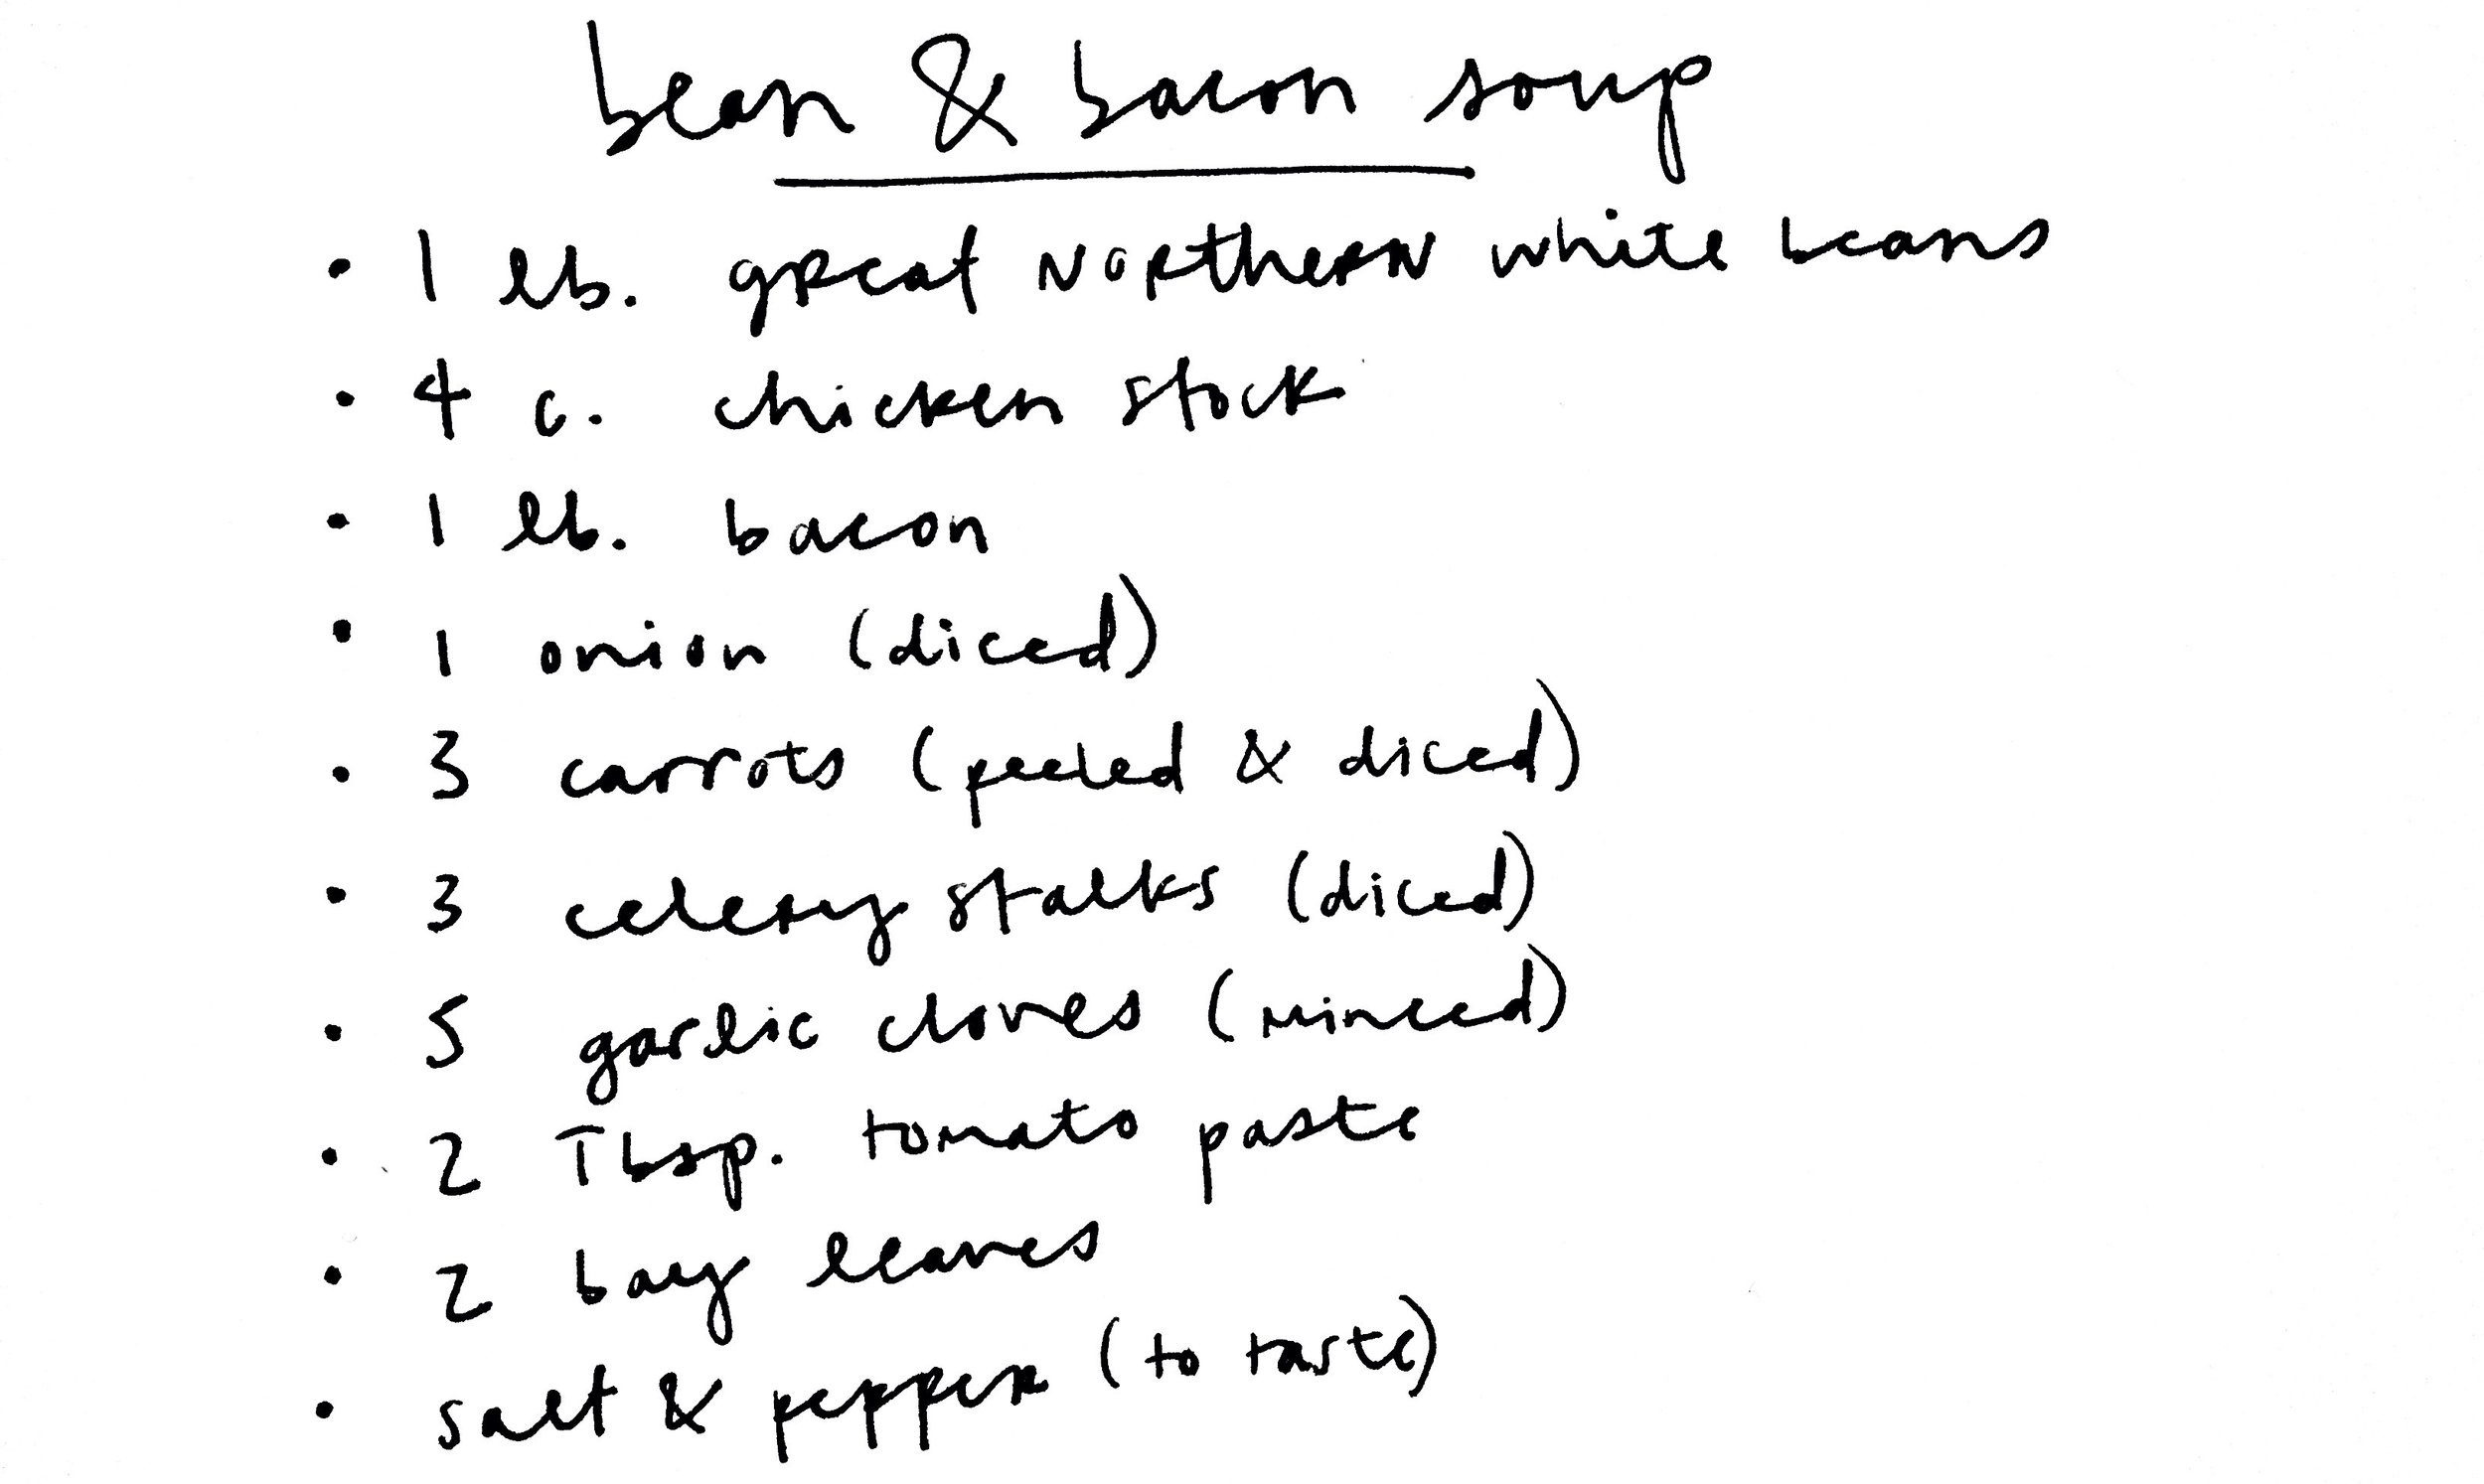 bean & bacon soup
• 1 lb. great Northern white beans
• 4 c. chicken stock
• 1 lb. bacon
• 1 onion (diced)
• 3 carrots (peeled & diced)
• 3 celery stalks (diced)
• 5 garlic cloves (minced)
• 2 Tbsp. tomato paste
• 2 bay leaves
• salt & pepper (to taste)